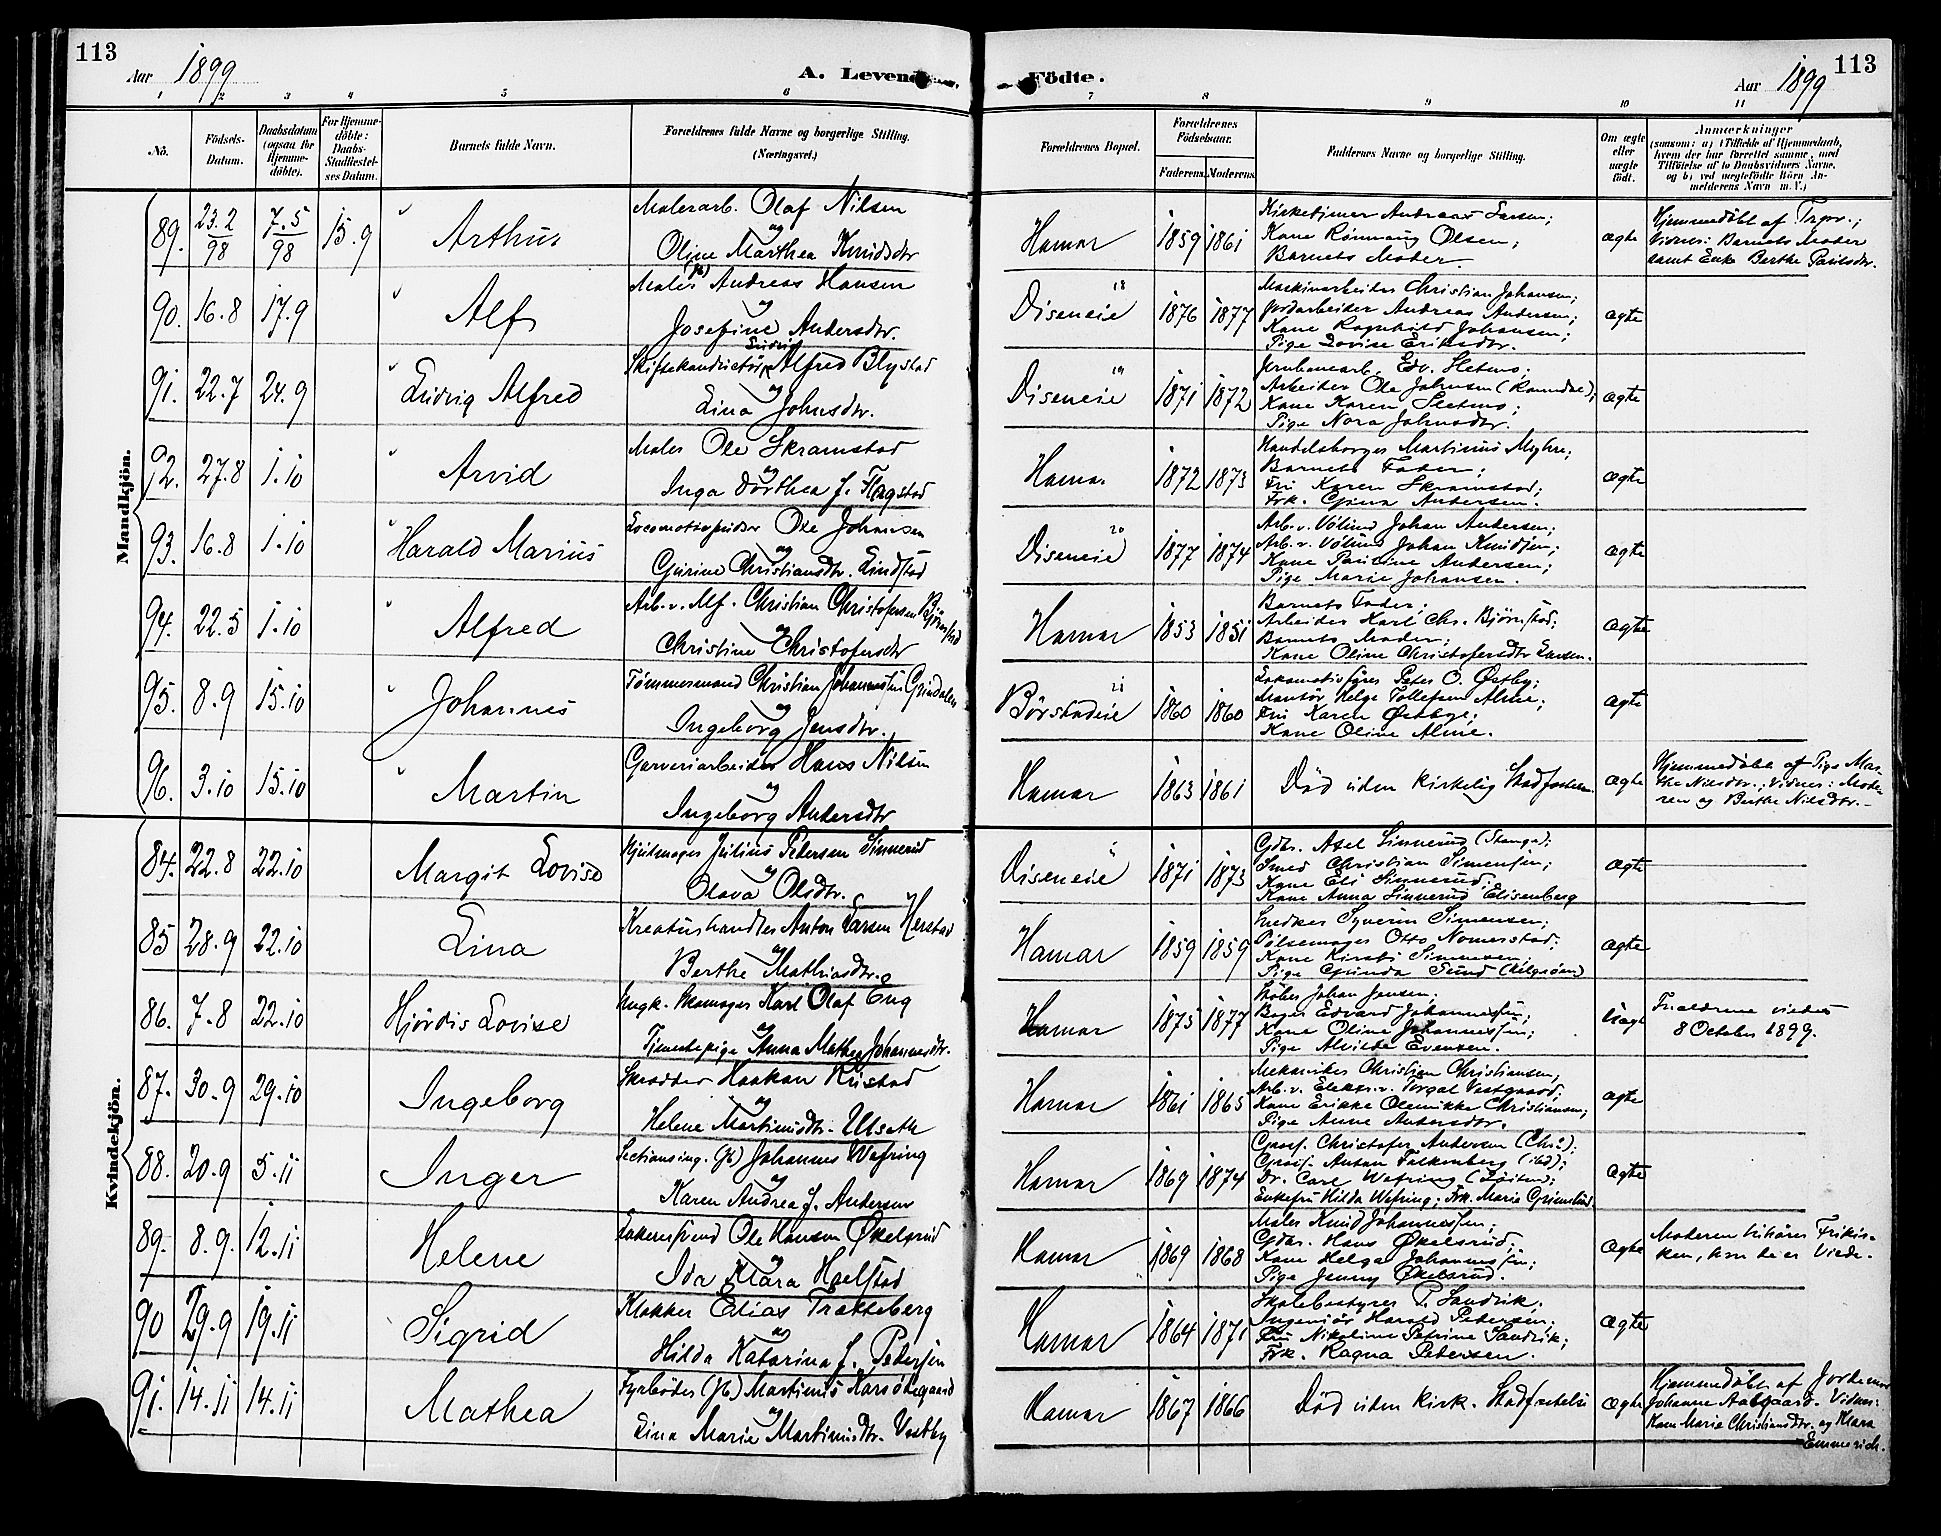 113
Aar 1899
A. Levende
Födte.
Aar 1899
113
1 2 3 4 5 6 7 8 9 10 11
No.
Födsels-Datum.
Daabsdatum (ogsaa for Hjemme-döbte).
For Hjemme-döbte: Daabs-Stadfæstel-ses Datum.
Barnets fulde Navn.
Forældrenes fulde Navne og borgerlige Stilling. (Næringsvei.)
Forældrenes Bopæl.
Forældrenes Födselsaar.
Faderens. Moderens.
Faddernes Navne og borgerlige Stilling.
Om ægte eller uægte födt.
Anmærkninger
(saasom: a) i Tilfælde af Hjemmedaab,
hvem der har forrettet samme, med
Tilföielse af to Daabsvidners Navne,
og b) ved uægtefödte Börn An-
melderens Navn m. V.)
Mandkjön.
89. 23.2/98 7.5/98 15.9 Arthur
Malerarb. Olaf Nilsen
og
Oline Marthea Knudsdtr
Hamar 1859 1861
Kirketjener Andreas Larsen;
Kone Rønnaug Olsen;
Barnets Moder.
ægte
Hjemmedøbt af
Vidner: Barnets Moder
samt Enke Berthe Paulsdtr.
90. 16.8 17.9 Alf
Maler Andreas Hansen
og
Josefine Andersdtr.
Diseneie 18 1876 1877
Maskinarbeider Christian Johansen;
Jordarbeider Andreas Andersen;
Kone Ragnhild Johansen;
Pige Lovise Eriksdtr.
ægte
91. 22.7 24.9 Ludvig Alfred
Skiftekonduktør Ludvig Alfred Blystad
og
Lina Johnsdtr.
Diseneie 19 1871 1872
Jernbanearb. Edv. Sletmo;
Arbeider Ole Johnsen
Kone Karen Sletmo;
Pige Nora Johnsdtr.
ægte
92. 27.8 1.10 Arvid
Maler Ole Skramstad
og
Inga Dorthea f. Flagstad
Hamar 1872 1873
Handelsborger Martinius Myhre;
Barnets Fader;
Fru Karen Skramstad;
Frk. Gina Andersen.
ægte
93. 16.8 1.10 Harald Marius
Locomotivpudser Ole Johansen
og
Gurine Christiansdtr. Lindstad
Diseneie 20 1877 1874
Arb. v. Vølund Johan Andersen;
Arb. v. Vølund Johan Knudsen;
Kone Pauline Andersen;
Pige Marie Johansen.
ægte
94. 22.5 1.10 Alfred
Arb. v. Alf. Christian Christofersen Bjørnstad
og
Christine Christofersdtr
Hamar 1853 1851
Barnets Fader;
Arbeider Karl Chr. Bjørnstad;
Barnets Moder;
Kone Oline Christofersdtr Larsen.
ægte
95. 8.9 15.10 Johannes
Tømmermand Christian Johannessen Grindalen
og
Ingeborg Jensdtr.
Børstadeie 21 1860 1860
Lokomotivfører Peter O. Østby;
Montør Helge Tollefsen Alme;
Fru Karen Østbye;
Kone Oline Alme.
ægte
96. 3.10 15.10 Martin
Garveriarbeider Hans Nilsen
og
Ingeborg Andersdtr
Hamar 1863 1861
Død uden kirkelig Stadfestelse
ægte
Hjemmedøbt af Pige Mar-
the Nilsdtr.; Vidner: Mode-
ren og Berthe Nilsdtr.
Kvindekjön.
84. 22.8 22.10 Margit Lovise
Hjulmager Julius Petersen Sinnerud
og
Olava Olsdtr.
Diseneie 1871 1873
Gdbr. Axel Sinnerud (Stange);
Smed Christian Simensen;
Kone Eli Sinnerud;
Kone Anna Sinnerud Elisenberg
ægte
85 28.9 22.10 Lina
Kreaturhandler Anton Larsen Herstad
og
Berthe Mathiasdtr.
Hamar 1859 1859
Snedker Syverin Simensen;
Pølsemager Otto Nomerstad;
Kone Kirsti Simensen;
Pige Gunda Sund (Helgøen)
ægte
86. 7.8 22.10 Hjørdis Lovise
Ungk. Skomager Karl Olaf Eng
og
Tjenestepige Anna Mathea Johannesdtr.
Hamar 1875 1877
Støber Johan Jensen;
Bager Edvard Johannessen;
Kone Oline Johannessen;
Pige Alvilde Evensen.
uægte
Forældrene viedes
8 October 1899.
87. 30.9 29.10 Ingeborg
Skrædder Haakon Rustad
og
Helene Martinusdtr. Ulseth
Hamar 1861 1865
Mekaniker Christian Christiansen;
Arb. v. Elektr. v. Torgal Vestgaard;
Kone Erikke Olemikke Christiansen;
Pige Anne Andersdtr.
ægte
88. 20.9 5.11 Inger
Sectionsing. (Jb) Johannes Wefring
og
Karen Andrea f. Andersen
Hamar 1869 1874
Gross. Christofer Andersen (Chr.);
Gross. Anton Falkenberg (ibd);
Dr. Carl Wefring (Løiten);
Enkefru Hilda Wefring; Frk. Marie Grimslund.
ægte
89. 8.9. 12.11 Helene
Bakersvend Ole Hansen Økelsrud
og
Ida Klara Hoelstad
Hamar 1869 1868
Maler Knud Johannessen;
Gdbr. Hans Økelsrud;
Kone Helga Johannessen;
Pige Jenny Økelsrud.
ægte
Moderen tilhører Frikir-
ken, hvor de er Viede.
90 29.9 19.11 Sigrid
Klokker Elias Trætteberg
og
Hilda Katarina f. Petersen
Hamar 1864 1871
Skolebestyrer P. Sandvik;
Ingeniør Harald Petersen;
Fru Nikoline Petrine Sandvik;
Frk. Ragna Petersen.
ægte
91. 14.11 14.11 Mathea
Fyrbøder (Jb) Martinus Korsødegaard
og
Lina Marie Martinusdtr. Vestby
Hamar 1867 1866
Død uden kirk. Stadfæstelse
ægte
Hjemmedøbt af Jordemor
Johanne Aabgaard. Vidner:
Kone Marie Christiansdtr. og Klara
Emmerich.